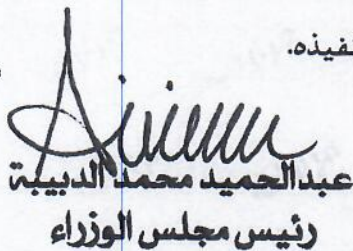 فيذه.
عبدالحميد محمد الدبيبة
رئيس مجلس الوزراء